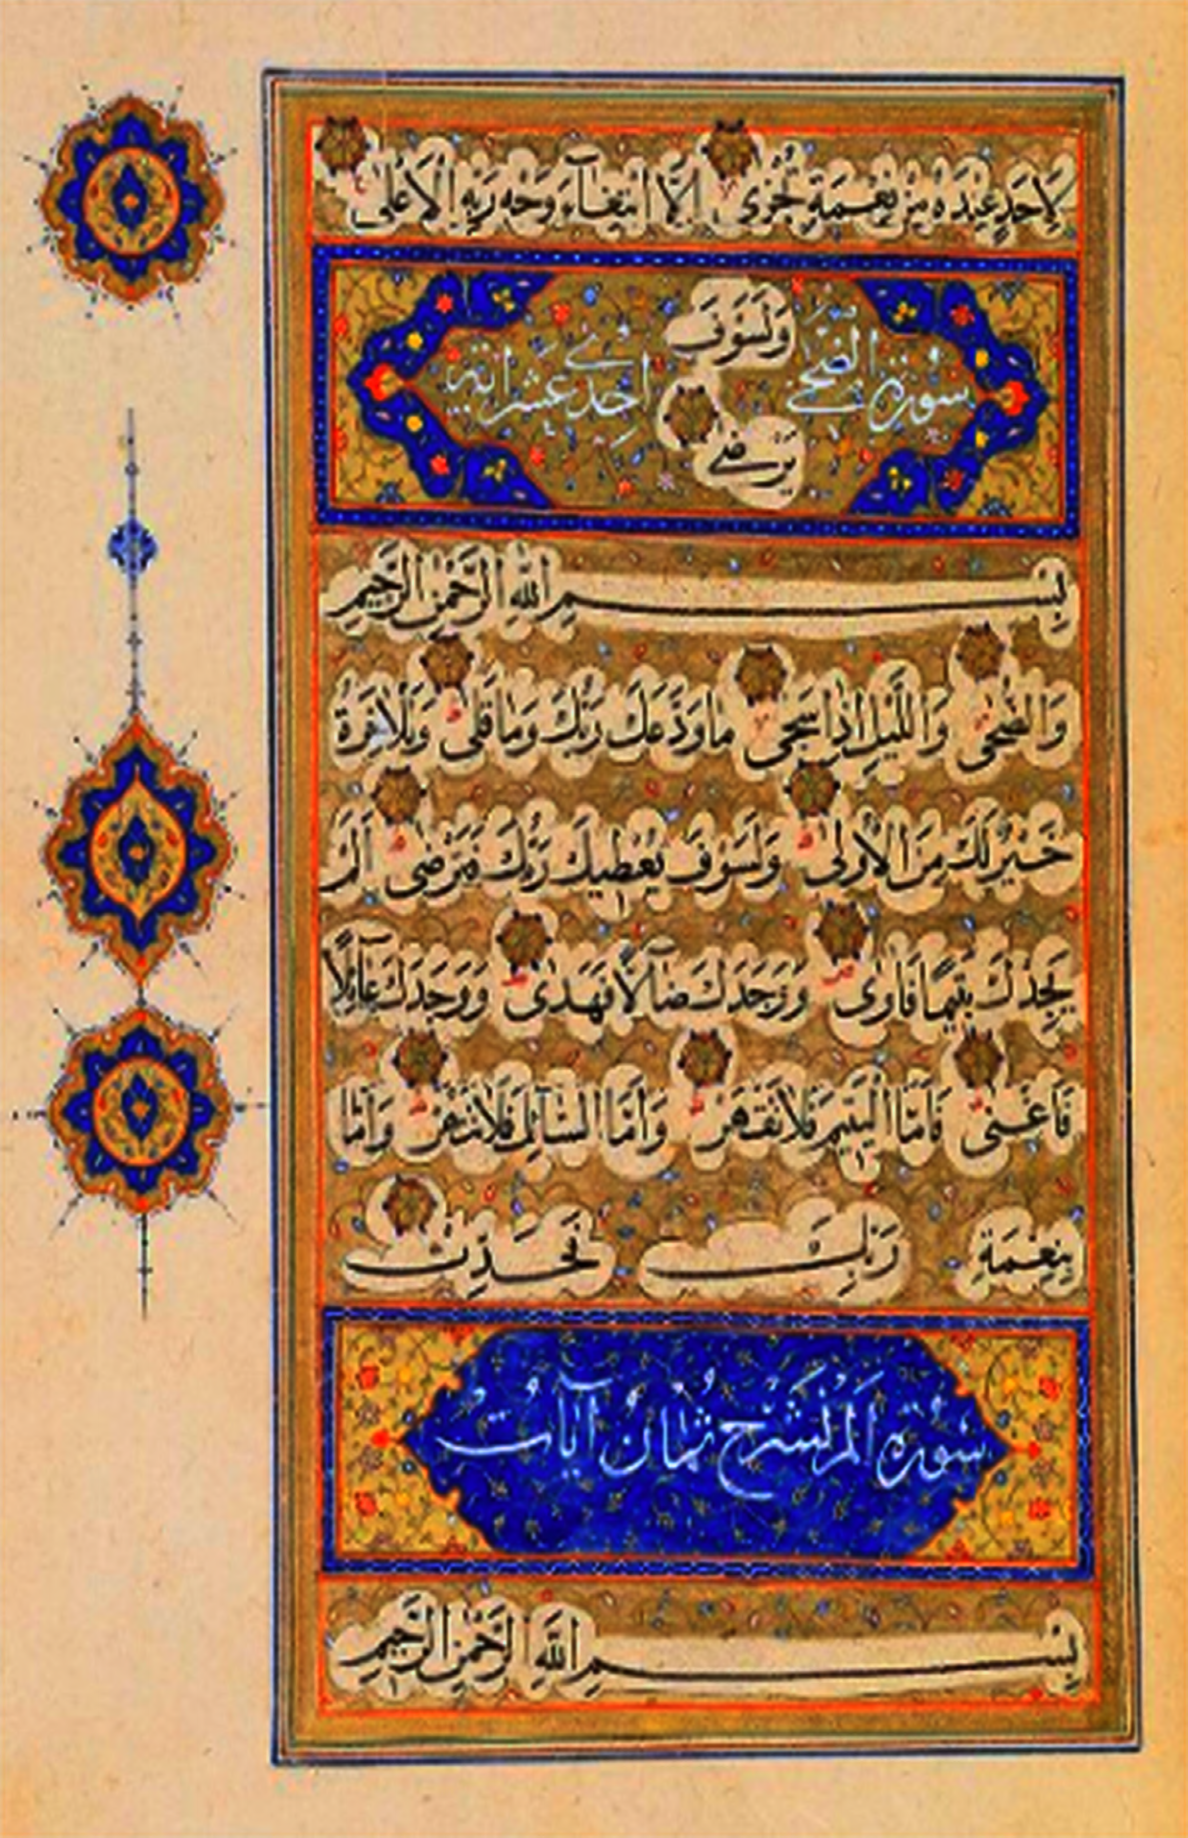 لِأَحَدٍ عِنْدَهُ مِنْ نِعْمَةٍ تُجْزَىٰ إِلَّا ابْتِغَآءَ وَجْهِ رَبِّهِ الْأَعْلَىٰ
سورة الضحى وَلَسَوْفَ احدى عشر اية
يَرْضَىٰ
بِسْمِ اللَّهِ الرَّحْمَٰنِ الرَّحِيمِ
وَالضُّحَىٰ وَاللَّيْلِ إِذَا سَجَىٰ مَا وَدَّعَكَ رَبُّكَ وَمَا قَلَىٰ وَلَلْآخِرَةُ
خَيْرٌ لَكَ مِنَ الْأُولَىٰ وَلَسَوْفَ يُعْطِيكَ رَبُّكَ فَتَرْضَىٰ أَلَمْ
يَجِدْكَ يَتِيمًا فَآوَىٰ وَوَجَدَكَ ضَآلًّا فَهَدَىٰ وَوَجَدَكَ عَآئِلًا
فَأَغْنَىٰ فَأَمَّا الْيَتِيمَ فَلَا تَقْهَرْ وَأَمَّا السَّآئِلَ فَلَا تَنْهَرْ وَأَمَّا
بِنِعْمَةِ رَبِّكَ فَحَدِّثْ
سورة الم نشرح ثمان آيات
بِسْمِ اللَّهِ الرَّحْمَٰنِ الرَّحِيمِ